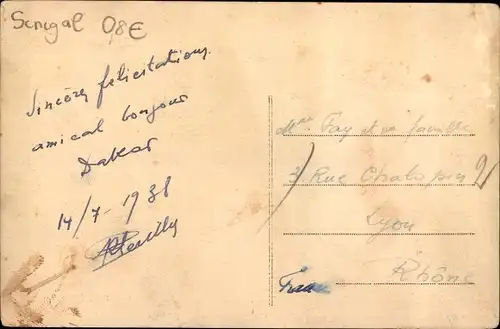 Senegal 08E
Sincères félicitations
amical bonjour
Dakar
14/7-1938
Mme Fay et sa famille
3 Rue Chalopin
Lyon
Rhône